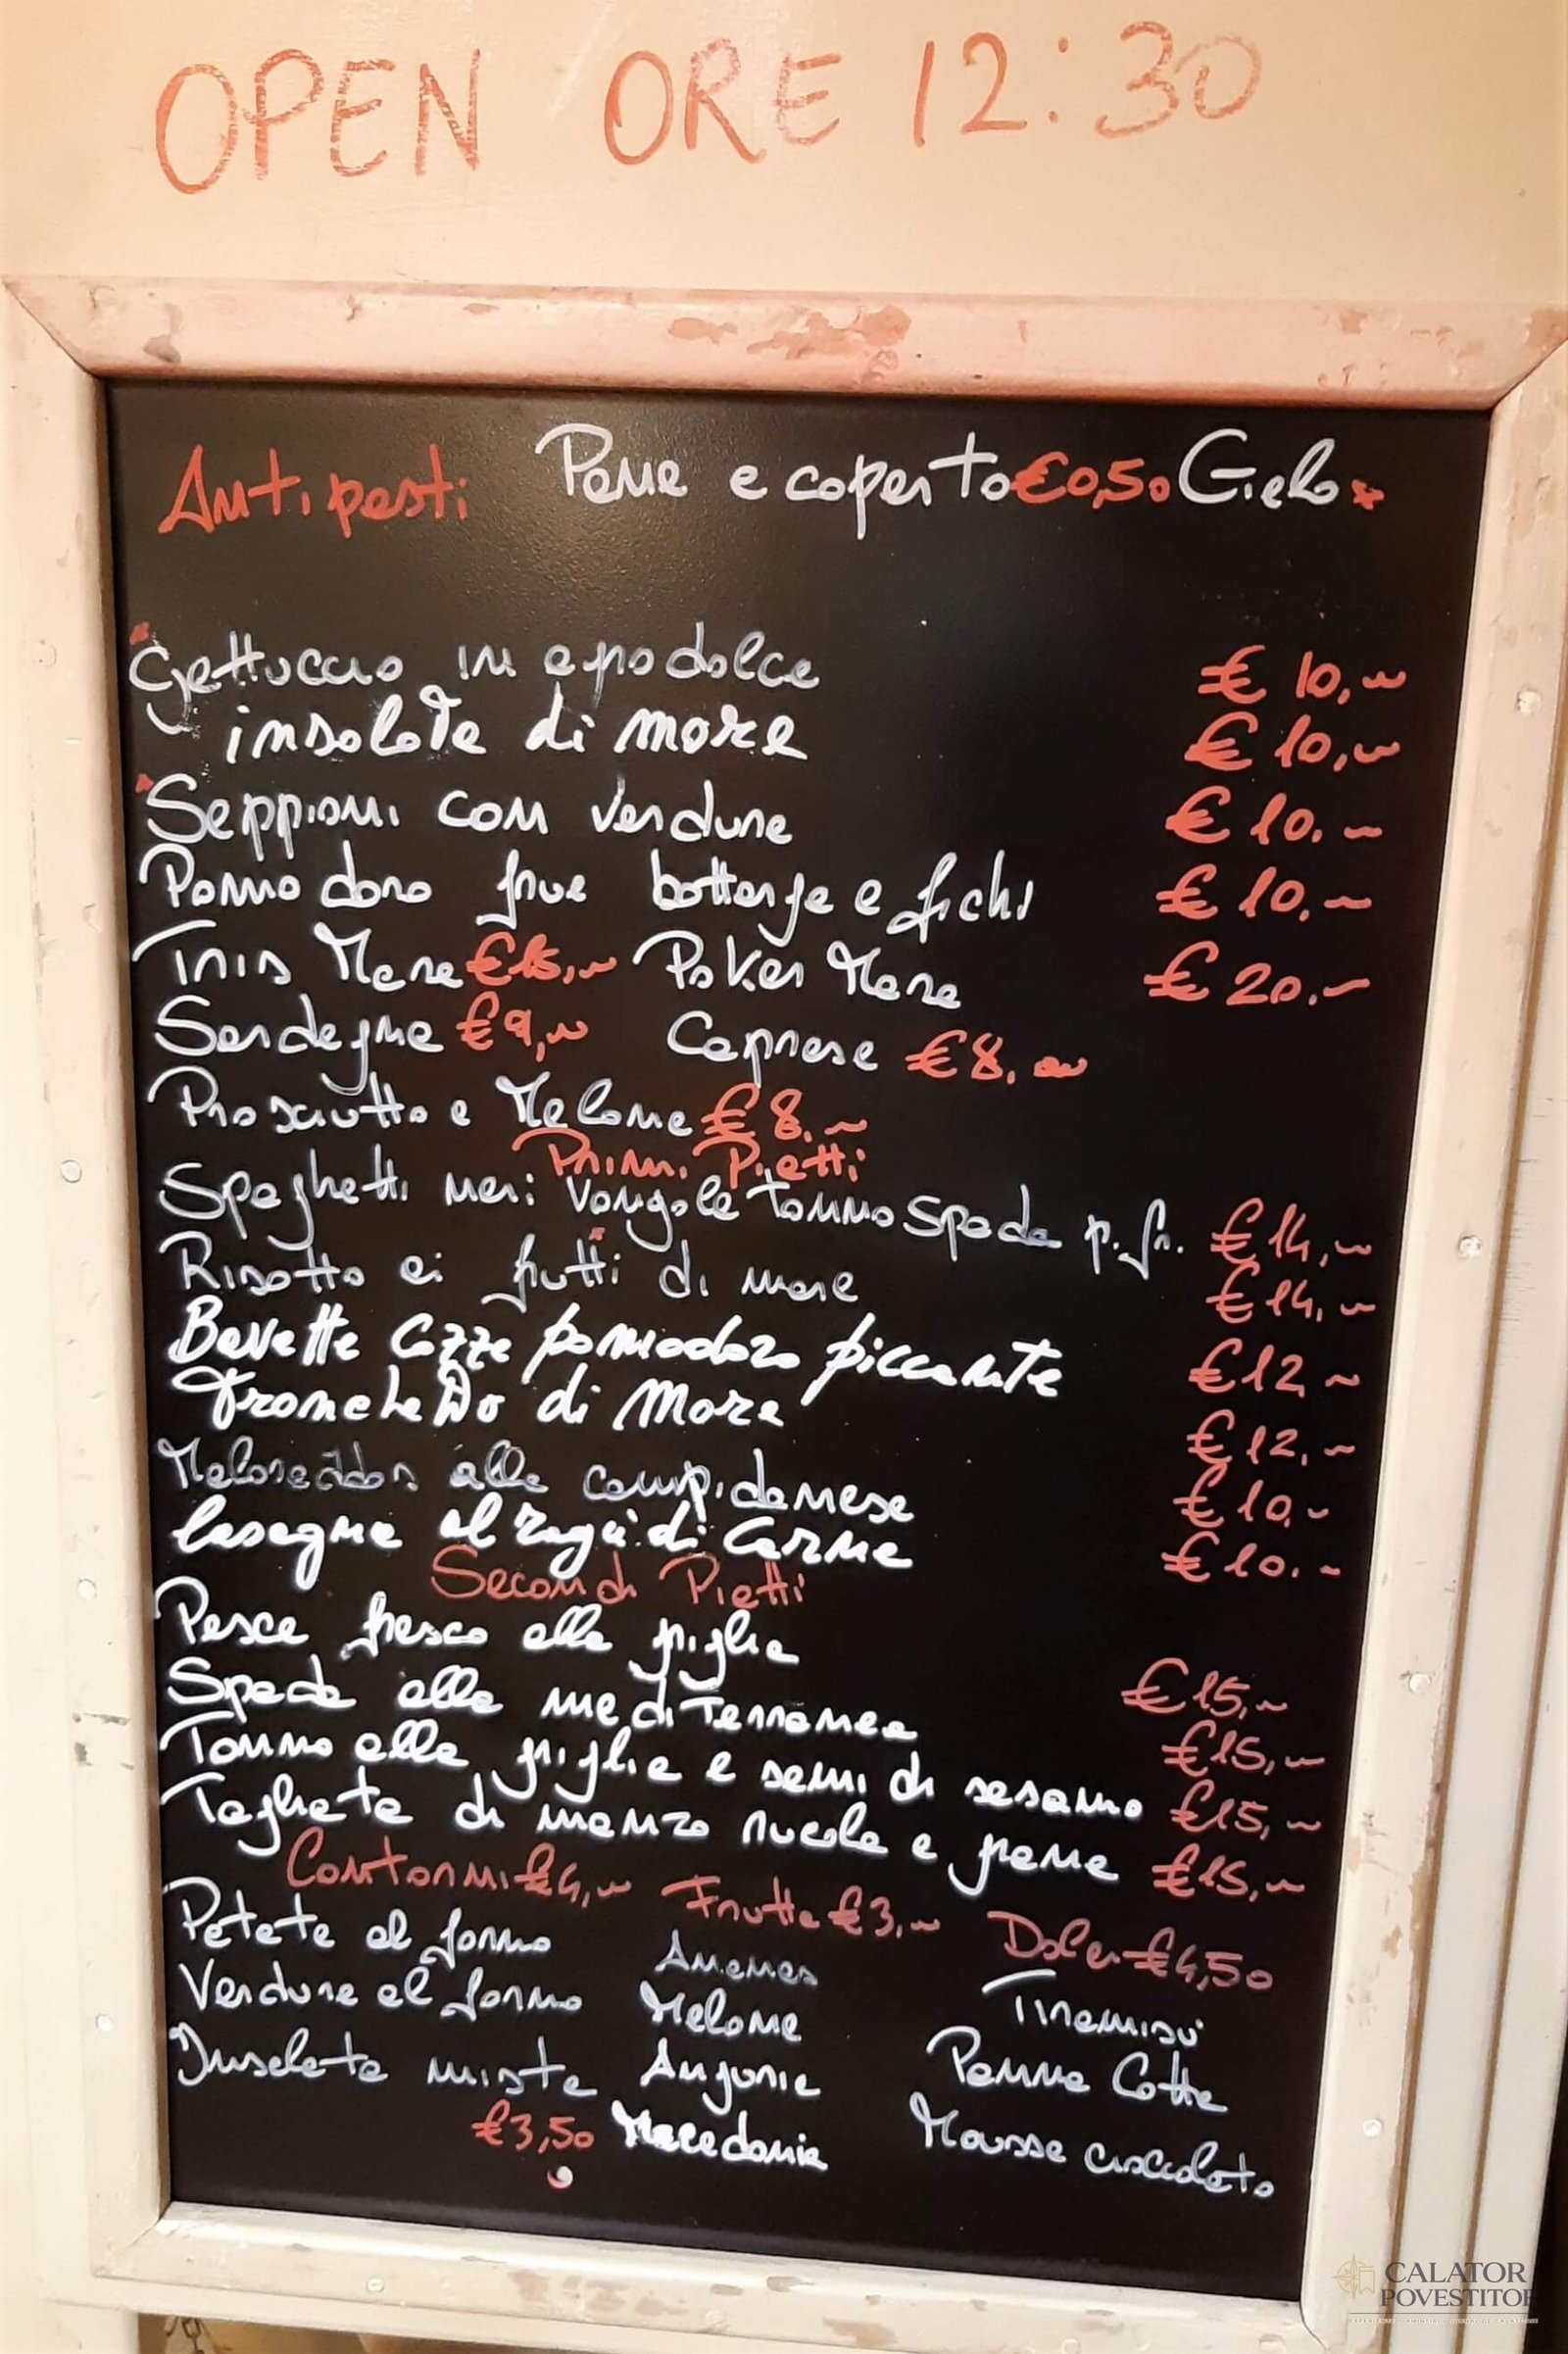 OPEN ORE 12:30
Antipasti Pane e coperto €0,50 Gelo *
Gattuccio in agrodolce € 10,~
insalata di mare € 10,~
Seppioni con verdure € 10.~
Pomodoro frue bottarga e fichi € 10.~
Tris Mare €15,~ Poker Mare € 20.~
Sardegna €9,~ Caprese €8,~
Prosciutto e Melone €8.~
Primi Piatti
Spaghetti neri vongole tonno spada p.fr. €14,~
Risotto ai frutti di mare €14,~
Bavette Cozze pomodoro piccante €12 ~
Troncheddo di Mare €12,~
alla campidanese €10,~
Lasagna al ragù di Carne €10.~
Secondi Piatti
Pesce fresco alla griglia €15,~
Spada alla mediterranea €15,~
Tonno alla griglia e semi di sesamo €15,~
Tagliata di manzo rucola e grana €15,~
Contorni €4,~ Frutta €3,~ Dolci €4,50
Patate al forno Ananas Tiramisù
Verdure al forno Melone Panna Cotta
Insalata mista Anguria Mousse cioccolato
€3,50 Macedonia
CALATOR
POVESTITOR